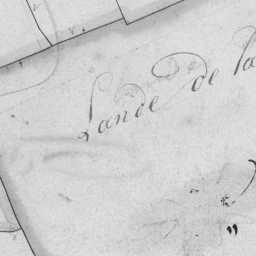 Lande de la